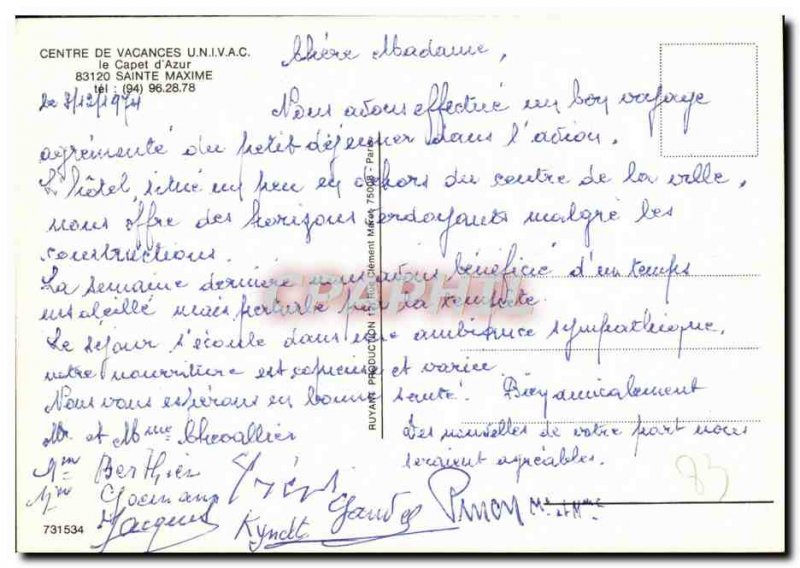 CENTRE DE VACANCES U.N.I.V.A.C.
le Capet d'Azur
83120 SAINTE MAXIME
tél : (94) 96.28.78
Chère Madame,
Nous avons effectué un bon voyage
agrémenté du petit déjeuner dans l'avion.
L'hôtel, situé un peu en dehors du centre de la ville,
nous offre des horizons verdoyants malgré les
constructions.
La semaine dernière nous avons bénéficié d'un temps
ensoleillé mais perturbé par la tempête.
Le séjour s'écoule dans une ambiance sympathique,
notre nourriture est copieuse et variée
Nous vous espérons en bonne santé. Bien amicalement
Mr. et Mme Chevallier
Des nouvelles de votre part nous
seraient agréables.
Mme Berthier
Mme
Jacques Kyndt Pinon Mr et Mme
83
731534
RUYANT PRODUCTION Rue Clément Marot 75008 - Paris
CPAPHIL